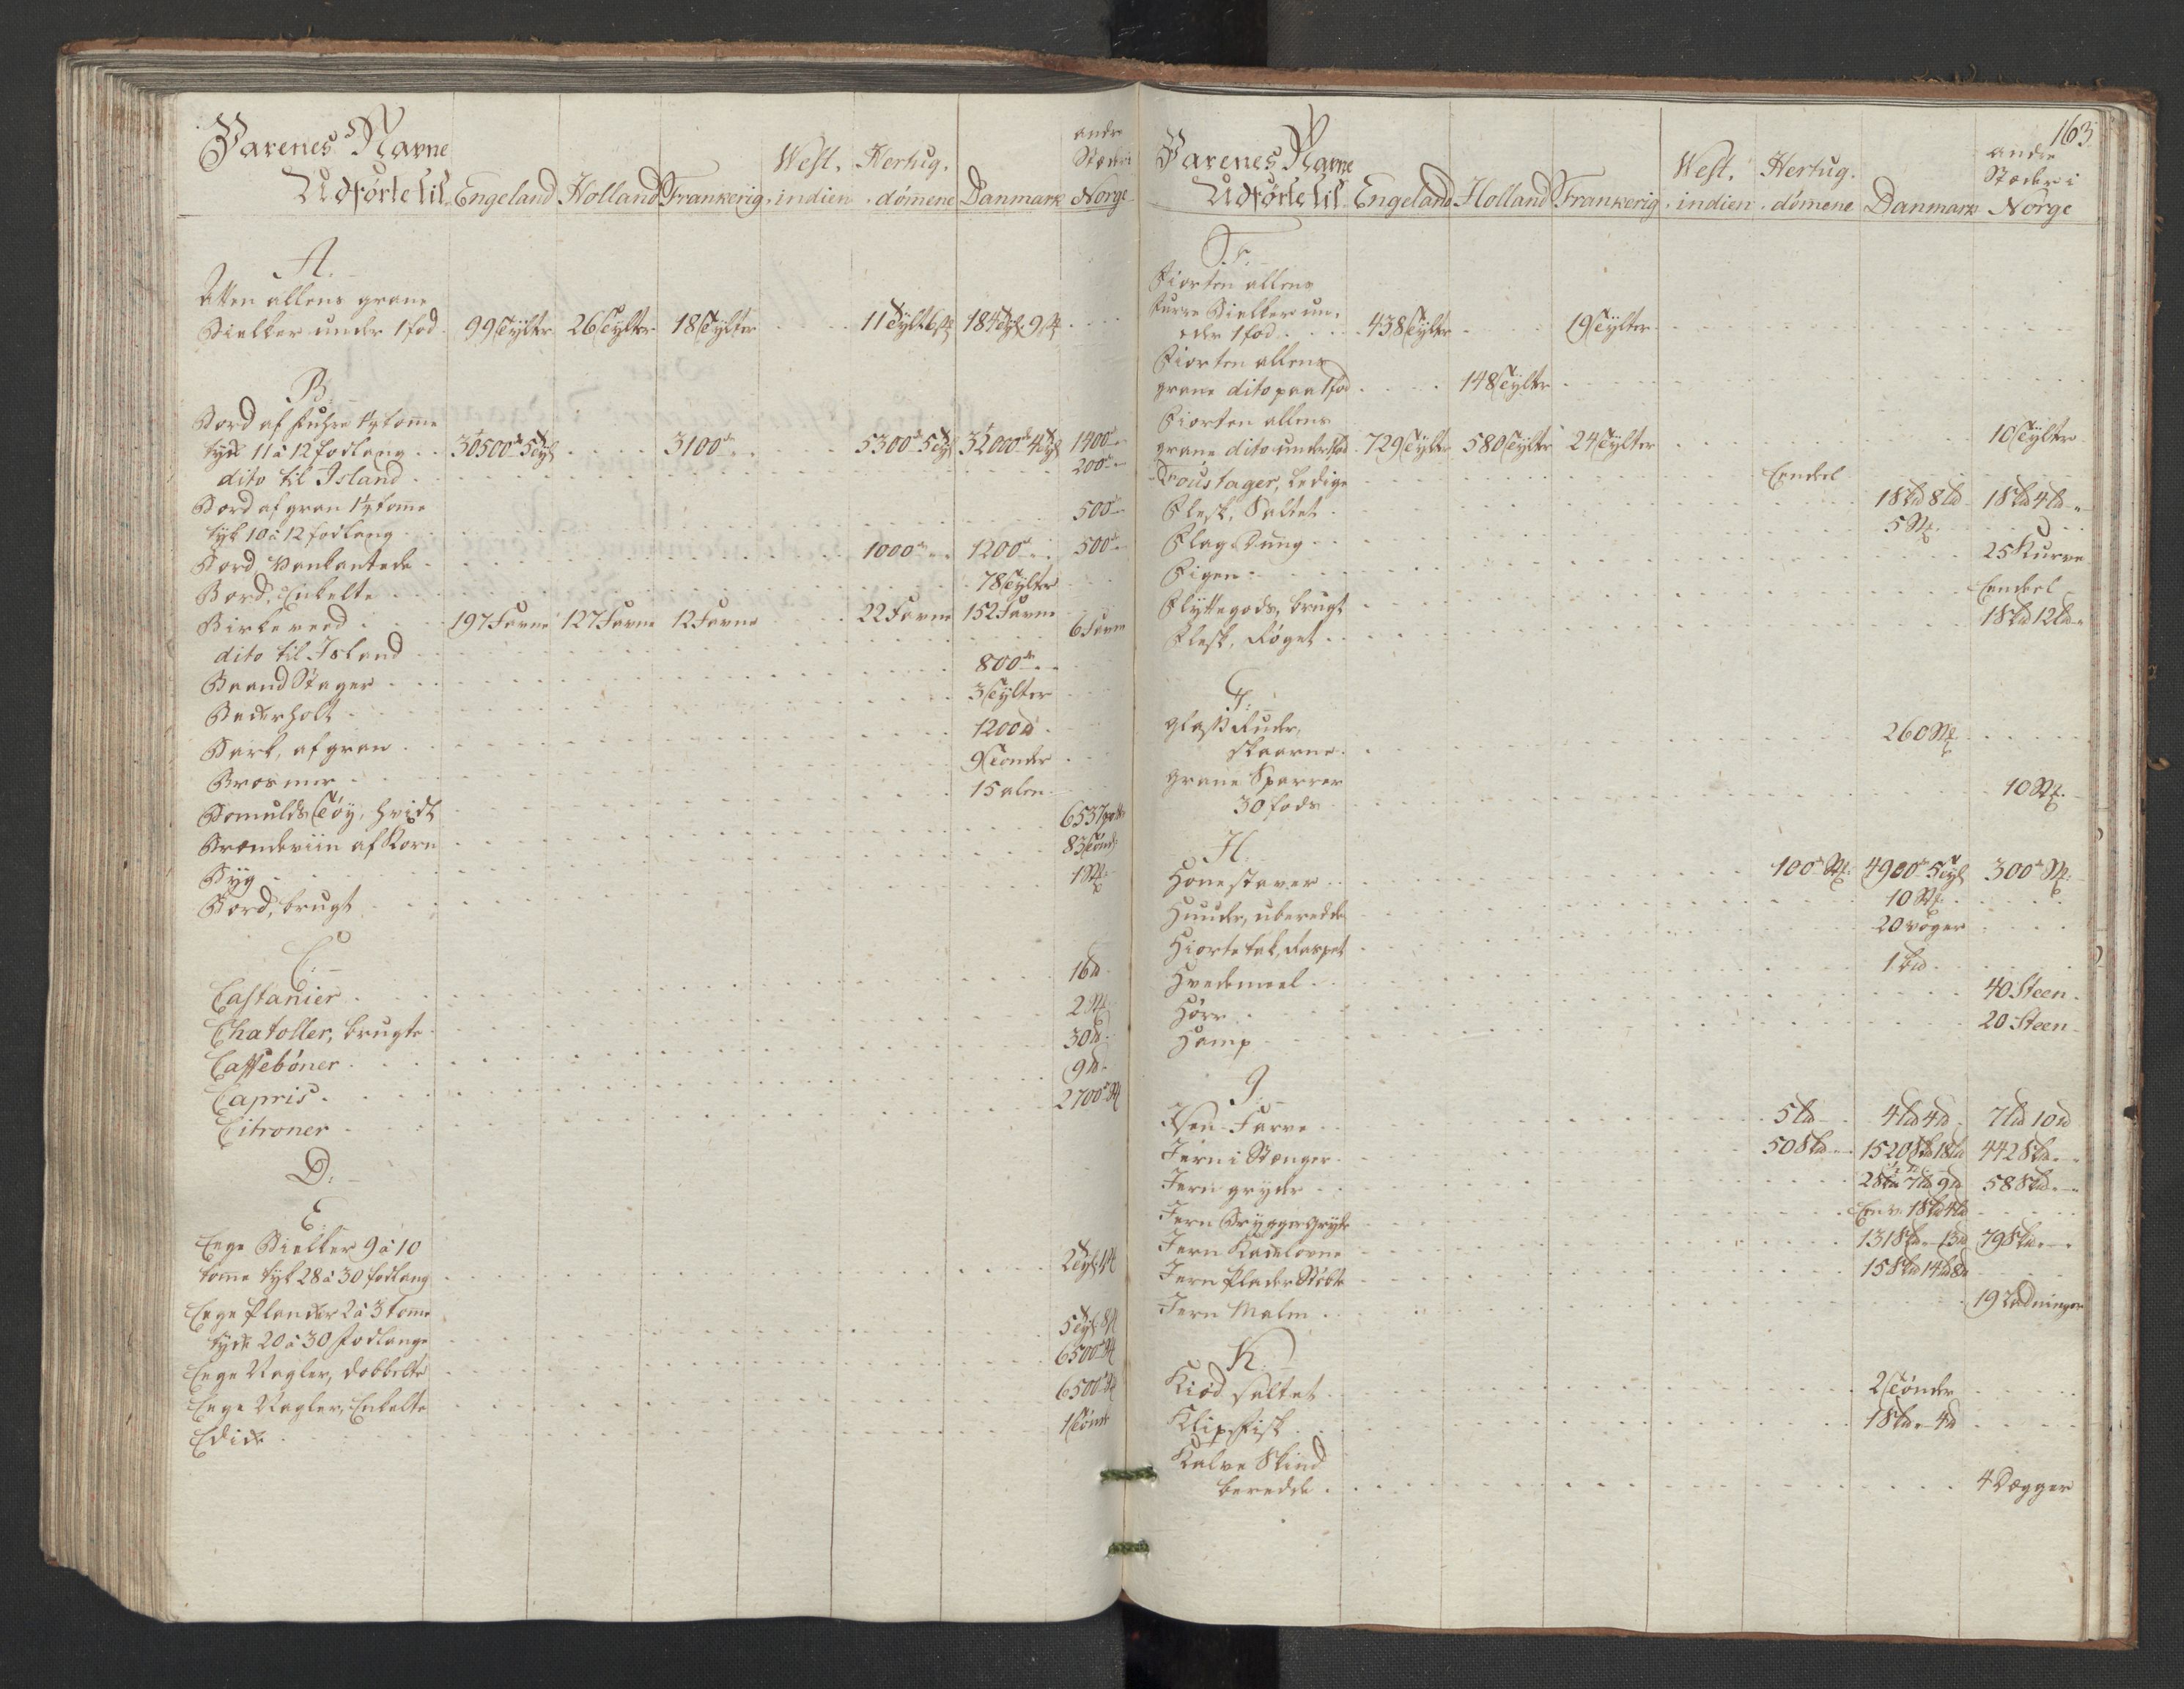 Varenes Navne
Udførte til Engeland Holland Frankerig West-indien Hertug-dømene Danmark andre Stæder i Norge
A.
Atten allens grane
Bielker under 1 fod 99 Tylter 26 Tylter 18 Tylter 11 Tylt 6 st 184 Tyl 9 st
B.
Bord af Fuhre 1¼ tomme
tyk 11 à 12 fod lang 30500 5 Tyl 3100 5300 5 Tyl 32000 4 Tyl 1400
dito til Island 200
Bord af gran 1¼ tomme
tyk 10 à 12 fod lang 500
Bord, Vankantede 1000 1200 500
Bord, Enkelte 78 Tylter
Birkeveed 197 Favne 127 Favne 12 Favne 22 Favne 152 Favne
dito til Island 6 Favne
Baand Stager 800
Bederholt 3 Tylter
Bark, af gran 1200 ℔
Brosmer 9 Tønder
Bomulds Tøy, hvidt 15 alen
Brændeviin af Korn 6537 potter
Byg 83 Tønd
Bord, brugt 1 St
C.
Castanier 16 ℔
Chatoller, brugte 2 St
Caffebøner 30 ℔
Capris 9 ℔
Citroner 2700 St
D.
E.
Eege Bielker 9 à 10
tomme tyk 28 à 30 fod lang 2 Tyl 4 st
Eege Planker 2 à 3 tome
tyck 20 à 30 Fod lange 5 Tyl 8 st
Eege Nagler, dobbelte 6500 St
Eege Nagler, Enkelte 6500 St
Edick 1 Tønde
163
Varenes Navne
Udførte til Engeland Holland Frankerig West-indien Hertug-dømene Danmark andre Stæder i Norge
F.
Fiorten allens
furre Bielker un-
der 1 fod 438 Tylter 19 Tylter
Fiorten allens
grane dito paa 1 fod 148 Tylter
Fiorten allens
grane dito under 1 fod 729 Tylter 580 Tylter 24 Tylter 10 Tylter
Foustager, ledige Eendeel
Flesk, Saltet 1 S℔ 8 ℔ 1 S℔ 4 ℔
Flag Dung 5 St
Figen 25 Kurve
Flyttegods, brugt Eendeel
Flesk, Røget 1 S℔ 12 ℔
G.
Glaß Ruder,
skaarne 260 St
Grane Sparrer
30 fods 10 St
H.
Honestaver 100 St 4900 5 Tyl 300 St
Huuder, uberedde 10 St
Hiortetak, Raspet 20 voger
Hvedemeel 1 L℔
Hørr 40 Steen
Hamp 20 Steen
I.
Isen-Farve 5 L℔ 4 L℔ 4 ℔ 7 L℔ 10 ℔
Jern i Stænger 50 S℔ 1520 S℔ 18 L℔ 442 S℔
Jern gryder 28 S℔ 7 L℔ 9 ℔ 58 S℔
Jern Brygger Gryde Een v. 1 S℔ 4 L℔
Jern Kackelovne 131 S℔ 13 ℔ 79 S℔
Jern Plader Støbte 15 S℔ 14 L℔ 8 ℔
Jern Malm 19 Ladninger
K.
Kiød saltet 2 Tønder
Klipfisk 1 S℔ 4 ℔
Kalve Skind
beredde 4 Degger